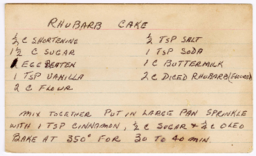 RHUBARB CAKE
½ C SHORTENING
1½ C SUGAR
1 EGG BEATEN
1 TSP VANILLA
2 C FLOUR
½ TSP SALT
1 TSP SODA
1 C BUTTERMILK
2 C DICED RHUBARB
MIX TOGETHER PUT IN LARGE PAN SPRINKLE
WITH 1 TSP CINNAMON, ½ C SUGAR & OLEO
BAKE AT 350° FOR 30 TO 40 MIN.